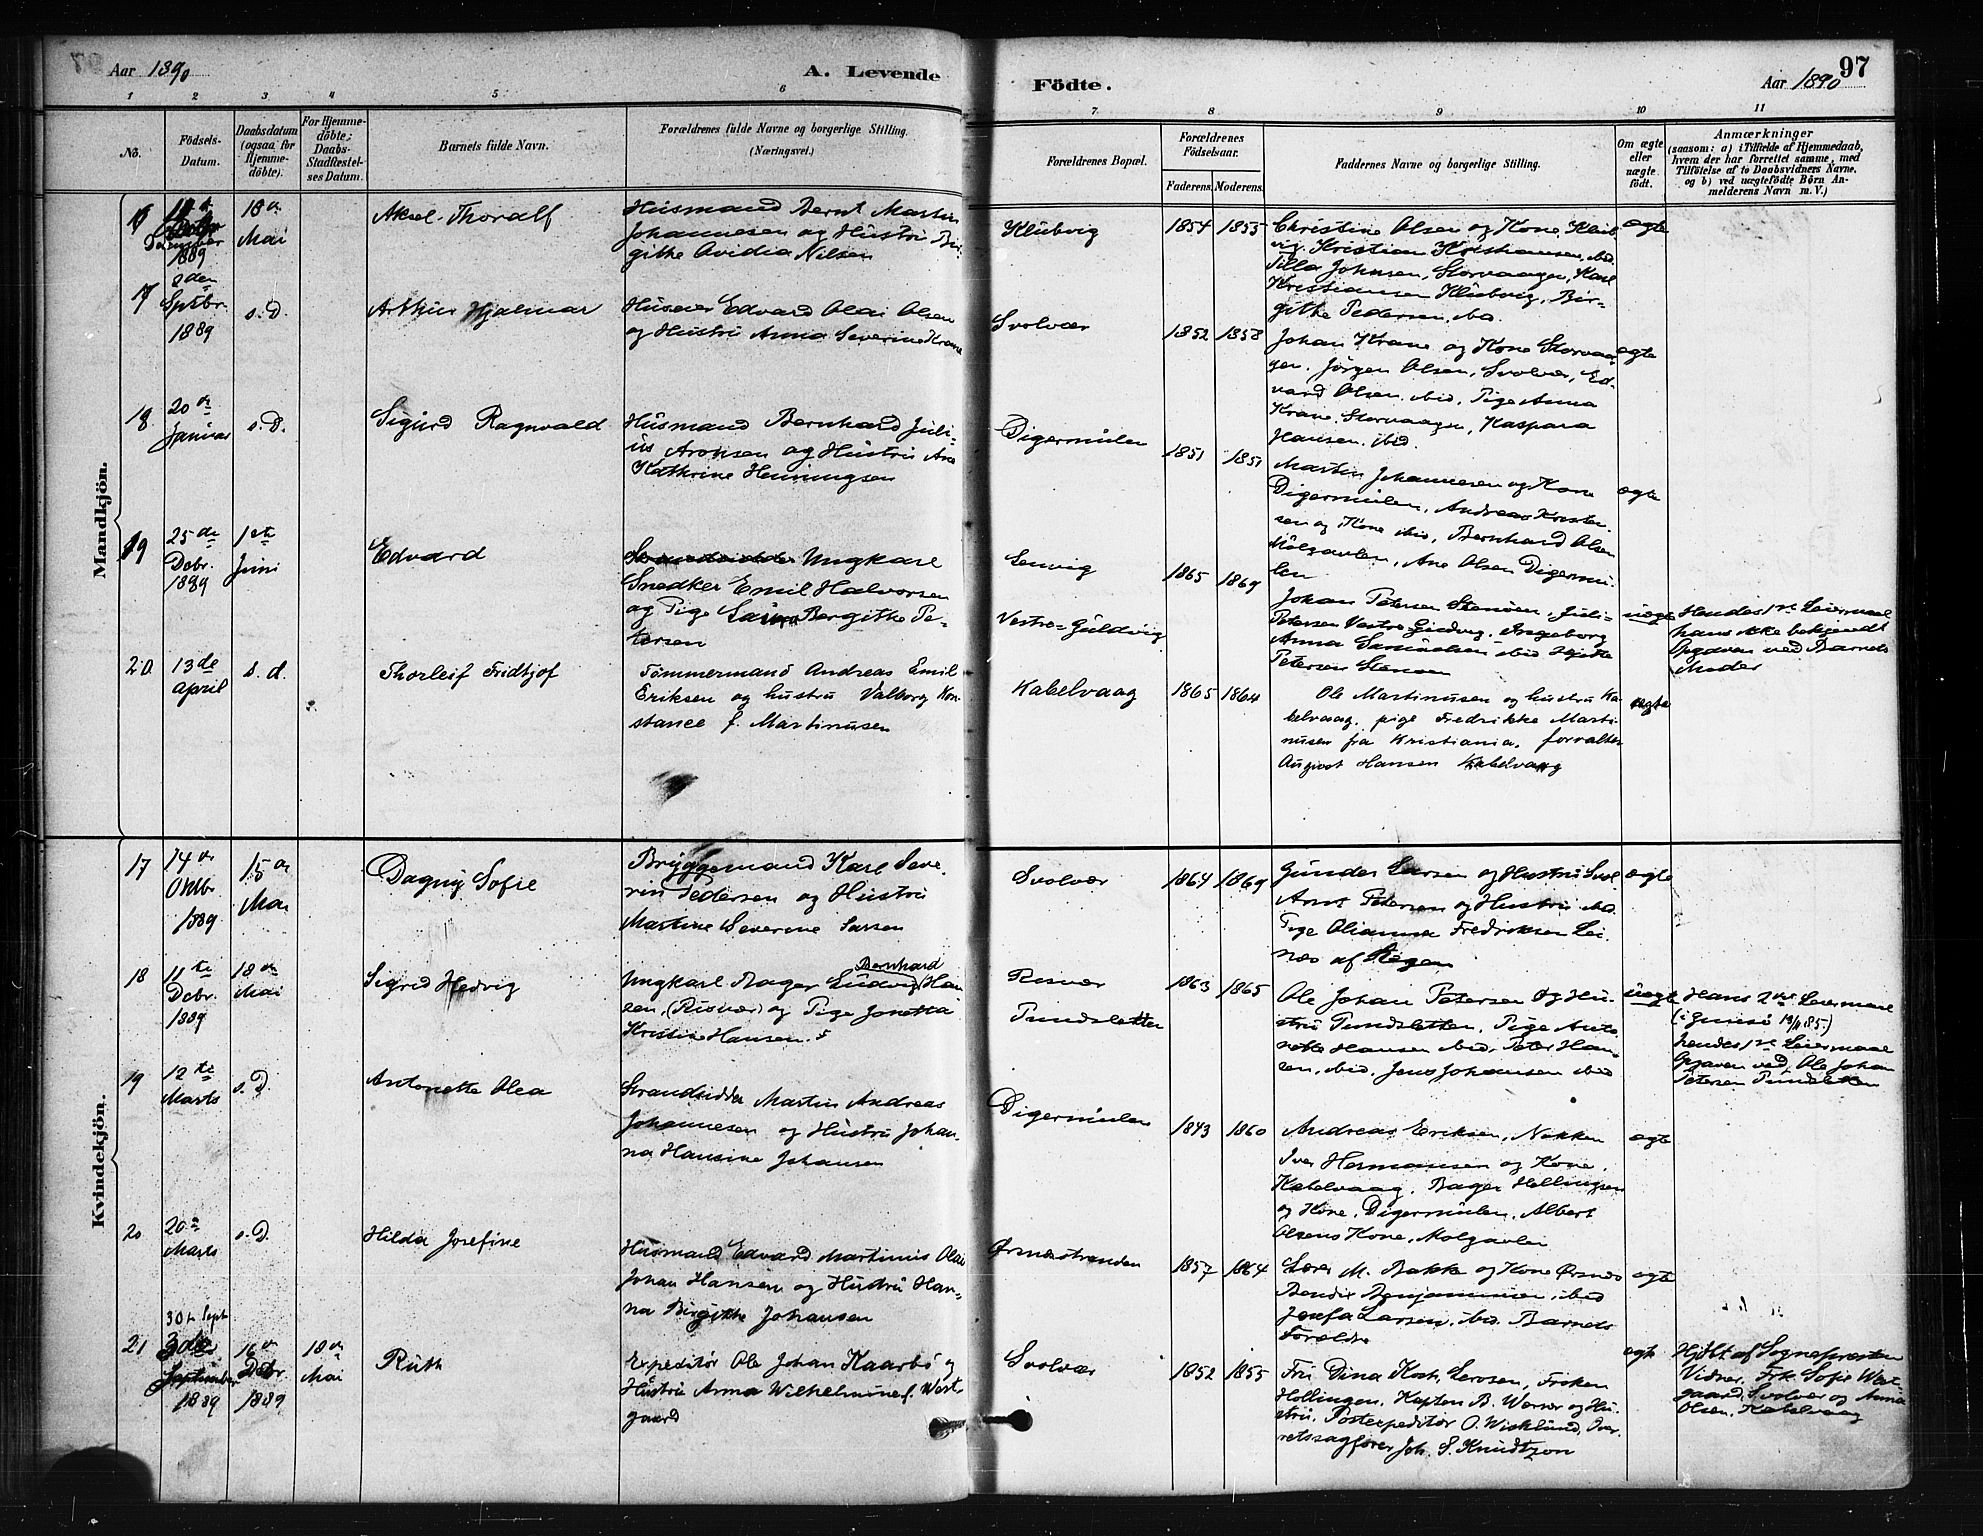 Aar 1890
A. Levende
Födte.
Aar 1890
97
1 2 3 4 5 6 7. 8 9 10 11
No.
Födsels-
Datum.
Daabsdatum
(ogsaa for
Hjemme-
döbte).
For Hjemme-
döbte;
Daabs-
Stadfæstel-
ses Datum.
Barnets fulde Navn.
Forældrenes fulde Navne og borgerlige Stilling.
(Næringsvei.)
Forældrenes Bopæl.
Forældrenes
Födselsaar.
Faderens. Moderens.
Faddernes Navne og borgerlige Stilling.
Om ægte
eller
uægte
födt.
Anmærkninger
(saasom: a) i Tilfælde af Hjemmedaab,
hvem der har forrettet samme, med
Tilföielse af to Daabsvidners Navne.
og b) ved uægtefödte Börn An-
melderens Navn m. V.)
Mandkjön.
16
1889
18de
Mai
Aksel Thoralf
Husmand Bernt Martin
Johannesen og Hustru Bir-
githe Ovidia Nilsen
Klubvig
1854 1855
Christine Olsen og Kone, Klub-
vig, Kristian Kristiansen, ibid.
Tilla Johnsen, Storvaagen, Karl
Kristiansen Klubvig, Bir-
githe Pedersen, ibid.
ægte
17
8den
Septbr.
1889
s. D.
Arthur Hjalmar
Huseier Edvard Olai Olsen
og Hustru Anna Severine Krane
Svolvær
1852 1858
Johan Krane og Kone Storvaa-
gen, Jörgen Olsen, Svolvær, Ed-
vard Olsen, ibid, Pige Anna
Krane, Storvaagen, Kaspara
Hansen, ibid.
ægte
18
20de
Januar
s. D.
Sigurd Ragnvald
Husmand Bernhard Juli-
us Aronsen og Hustru Ane
Kathrine Henningsen
Digermulen
1851 1851
Martin Johannesen og Kone
Digermulen, Andreas Kristen-
sen og Kone ibid, Bernhard Olsen
Molgavlen, Ane Olsen Digermu-
len
ægte
19
25de
Decbr.
1889
1ste
Juni
Edvard
Ungkarl
Snedker Emil Halvorsen
og Pige Laura Bergithe Pe-
tersen
Lenvig
Vestre-Guldvig
1865 1869
Johan Petersen Stenöen, Juli-
Petersen Vestre Guldvig, Ingeborg
Anna Samuelsen ibid
Petersen Stenöen
uægte
Hendes 1ste Leiermaal
hans ikke bekjendt
Opgaven ved Barnets
Moder
20
13de
april
s. d.
Thorleif Fridtjof
Tömmermand Andreas Emil
Eriksen og hustru Valborg Kon-
stance f. Martinusen
Kabelvaag
1865 1864
Ole Martinusen og hustru Ka-
belvaag, pige Fredrikke Marti-
nusen fra Kristiania, forvalter
August Hansen Kabelvaag
ægte
Kvindekjön.
17
14de
Oktbr
1889
15de
Mai
Dagny Sofie
Bryggemand Karl Seve-
rin Pedersen og Hustru
Martine Severine Larsen
Svolvær
1864 1869
Gunder Larsen og Hustru Svol.
Arnt Petersen og Hustru ibid.
Pige Olianna Fredriksen Lei-
nes af Stegen
ægte
18
11te
Decbr.
1889
18de
Mai
Sigrid Hedvig
Ungkarl Bager Ludvig Bernhard Han-
sen, (Risvær) og Pige Jonetta
Kristine Hansen.
Risvær
Pundsletten
1863 1865
Ole Johan Petersen og Hu-
stru Pundsletten, Pige Anto-
nette Hansen ibid, Peter Han-
sen, ibid, Jens Johansen ibid
uægte
Hans 2det Leiermaal
(i Gimsö 13/11 85.)
hendes 1ste Leiermaal
Opgaven ved Ole Johan
Petersen Pundsletten
19
12te
Marts
s. D.
Antonette Olea
Strandsidder Martin Andreas
Johannesen og Hustru Johan-
na Hansine Johansen
Digermulen
1843 1860
Andreas Eriksen, Nokken
Iver Hermansen og Kone,
Kabelvaag, Bager Hellingsen
og Kone, Digermulen, Albert
Olsens Kone, Molgavlen
ægte
20
20de
Marts
s. D.
Hilda Josefine
Husmand Edvard Martinus Olai
Johan Hansen og Hustru Han-
na Birgithe Johansen
Örsnesstranden
1857 1864
Lærer M. Bakke og Kone Örsnes
Bendix Benjaminsen, ibid
Josefa Larsen, ibid. Barnets
Forældre
ægte
21
30te Sept
September
1889
16de
Decbr
1889
18de
Mai
Ruth
Expeditör Ole Johan Kaarbö og
Hustru Anna Wilhelmine f. West-
gaard
Svolvær
1852 1855
Fru Dina Koch, Fröken
Hollingen, Kaptein B. Warsor og Hu-
stru, Postexpeditör O. Wicklund, Over-
retssagförer Joh. S. Knudtzon
ægte
Hjdbt af Sognepræsten
Vidner, Frk. Sofie West-
gaard, Svolvær og Anna
Olsen, Kabelvaag